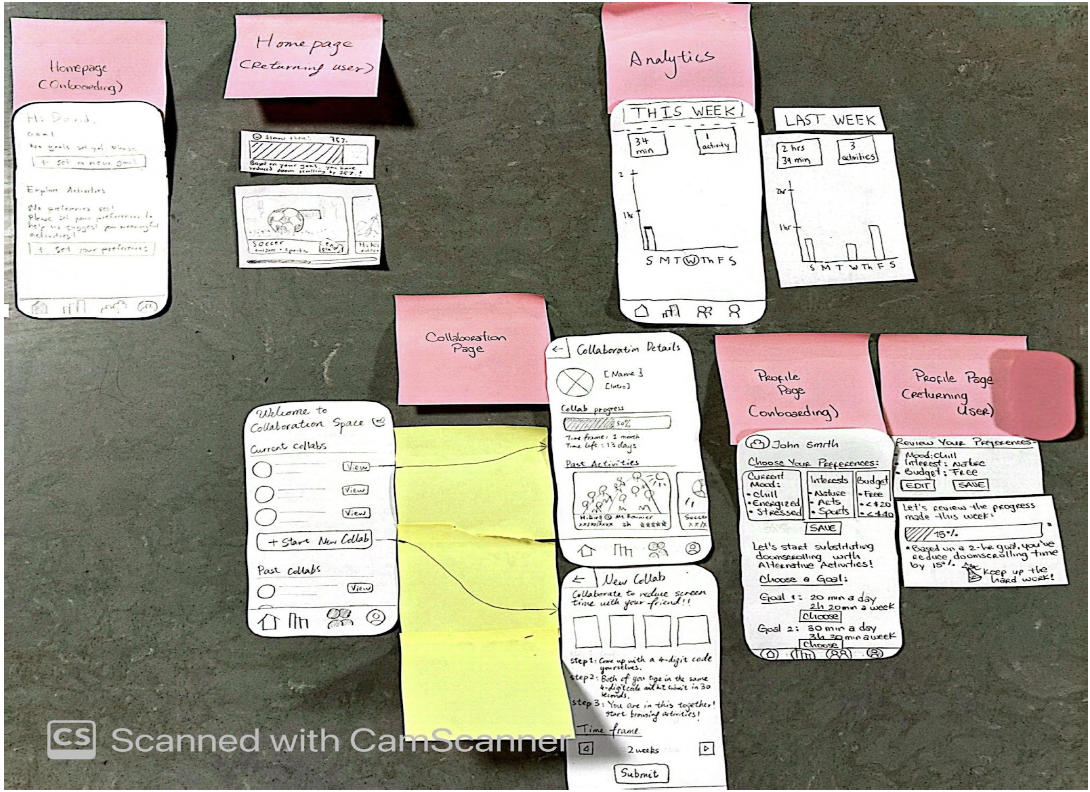 Homepage
(Onboarding)
Hi David,
Goal
No goals set yet. Please
+ Set a new goal
Explore Activities
No preferences set!
Please set your preferences to
help us suggest you meaningful
activities!
+ Set your preferences
Homepage
(Returning user)
75%
Based on your goal, you have
reduced doom scrolling by 75%!
Soccer
Analytics
THIS WEEK
34
min
1
activity
2
1hr
S M T W Th F S
LAST WEEK
2 hrs
39 min
3
activities
2hr
1hr
S M T W Th F S
Collaboration
Page
Welcome to
Collaboration Space
Current collabs
View
View
View
+ Start New Collab
Past collabs
View
Collaboration Details
[Name]
[Intro]
Collab progress
50%
Time frame: 1 month
Time left: 13 days
Past Activities
Hiking @ Mt Rainier
xx/xx/xxxx 5h
Soccer
xx/x
New Collab
Collaborate to reduce screen
time with your friend!!
Step 1: Come up with a 4-digit code
yourselves.
Step 2: Both of you type in the same
4-digit code and hit submit in 30
seconds.
Step 3: You are in this together!
start browsing activities!
Time frame
2 weeks
Submit
Profile
Page
(onboarding)
John Smith
Choose Your Preferences:
Current
Mood:
• Chill
• Energized
• Stressed
Interests
• Nature
• Arts
• Sports
Budget
• Free
• <$20
• <$40
SAVE
Let's start substituting
doomscrolling with
Alternative Activities!
Choose a Goal:
Goal 1: 20 min a day
2h 20min a week
Choose
Goal 2: 30 min a day
3h 30min a week
Choose
Profile Page
(returning
User)
Review Your Preferences:
• Mood: Chill
• Interest: Nature
• Budget: Free
EDIT SAVE
Let's review the progress
made this week!
15%
*Based on a 2-hr goal, you've
reduce doomscrolling time
by 15%
Keep up the
hard work!
CS Scanned with CamScanner